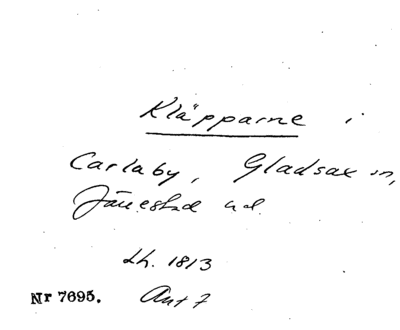 Kläpparne i
Carlaby, Gladsax sn,
Järrestad hd.
Lh. 1813
Ant 7
Nr 7695.